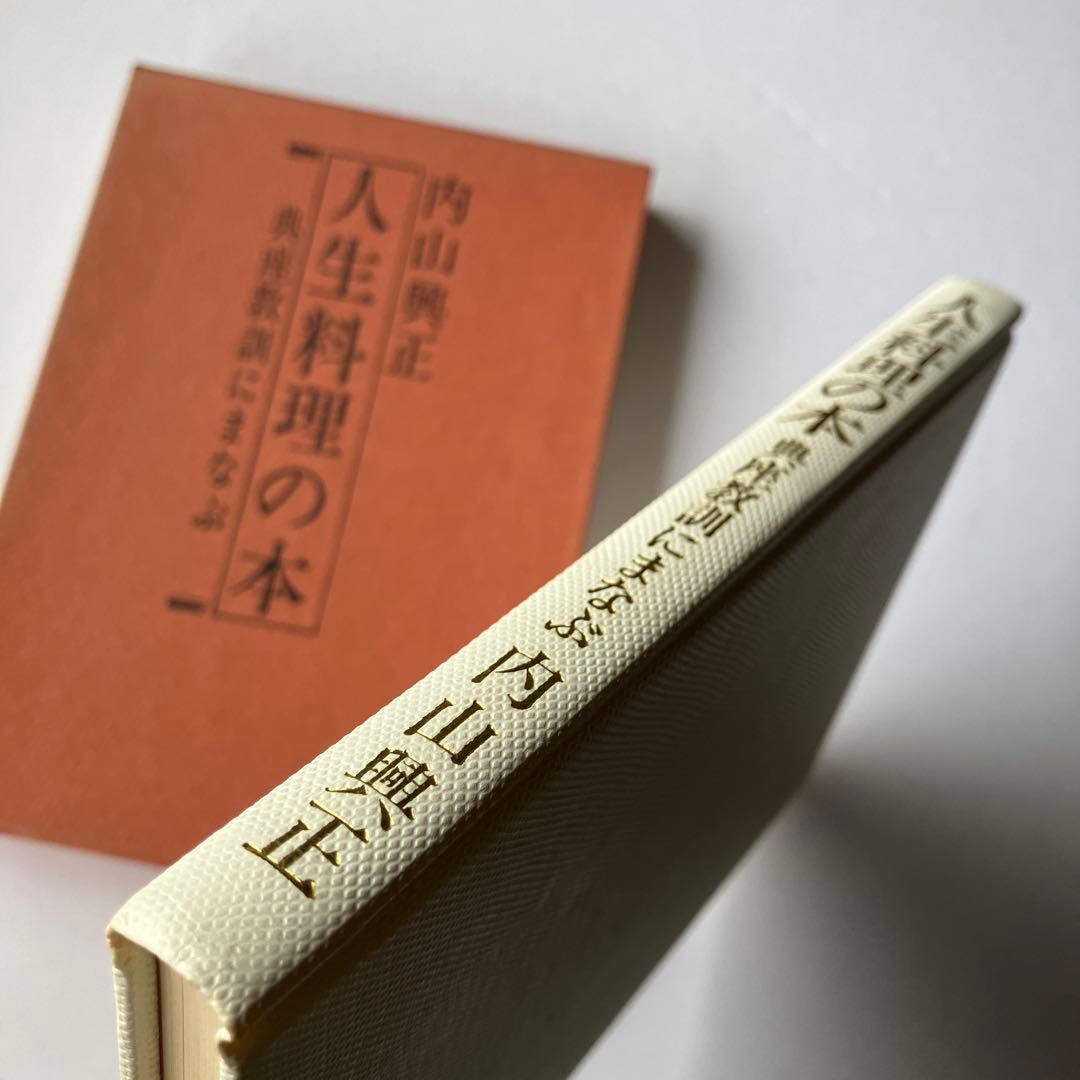 内山興正
人生料理の本
典座教訓にまなぶ
人生料理の本 典座教訓にまなぶ 内山興正